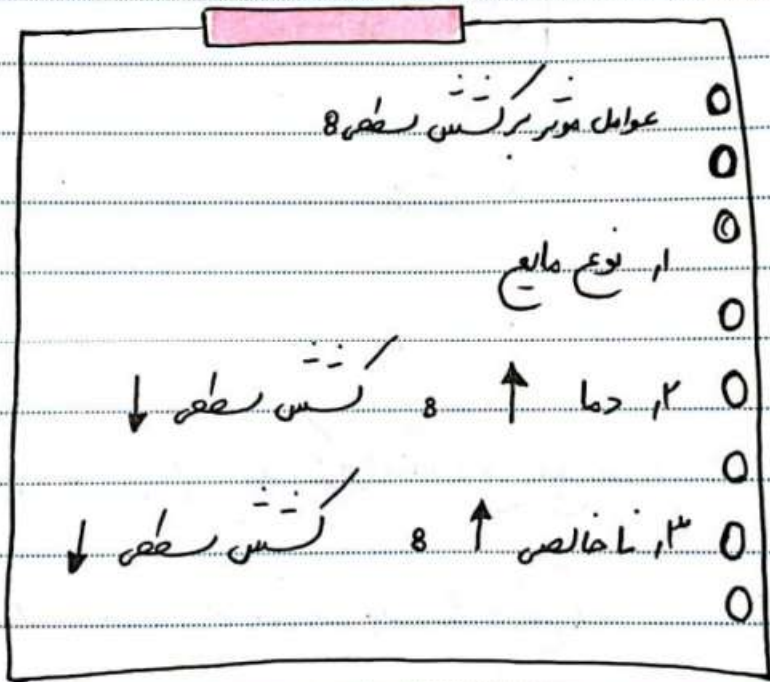 عوامل موثر بر کشش سطحی:
۱. نوع مایع
۲. دما ↑ : کشش سطحی ↓
۳. ناخالصی ↑ : کشش سطحی ↓